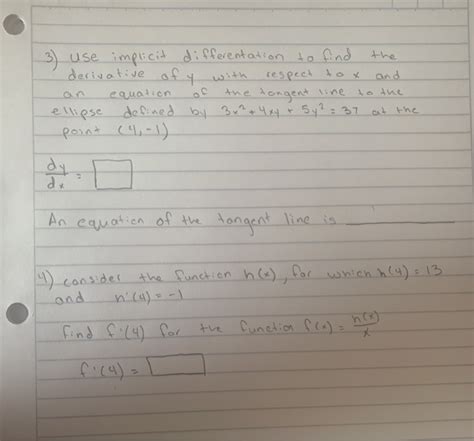 3) use implicit differentation to find the
derivative of y with respect to x and
an equation of the tangent line to the
ellipse defined by 3x² + 4xy + 5y² = 37 at the
point (4,-1)
dy/dx =
An equation of the tangent line is
4) consider the function h(x), for which h(4) = 13
and h'(4) = -1
find f'(4) for the function f(x) = h(x)/x
f'(4) =